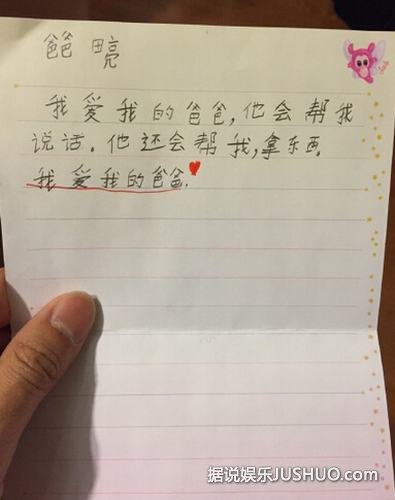 爸爸
我爱我的爸爸,他会帮我
说话.他还会帮我,拿东西.
我爱我的爸爸.
据说娱乐JUSHUO.com